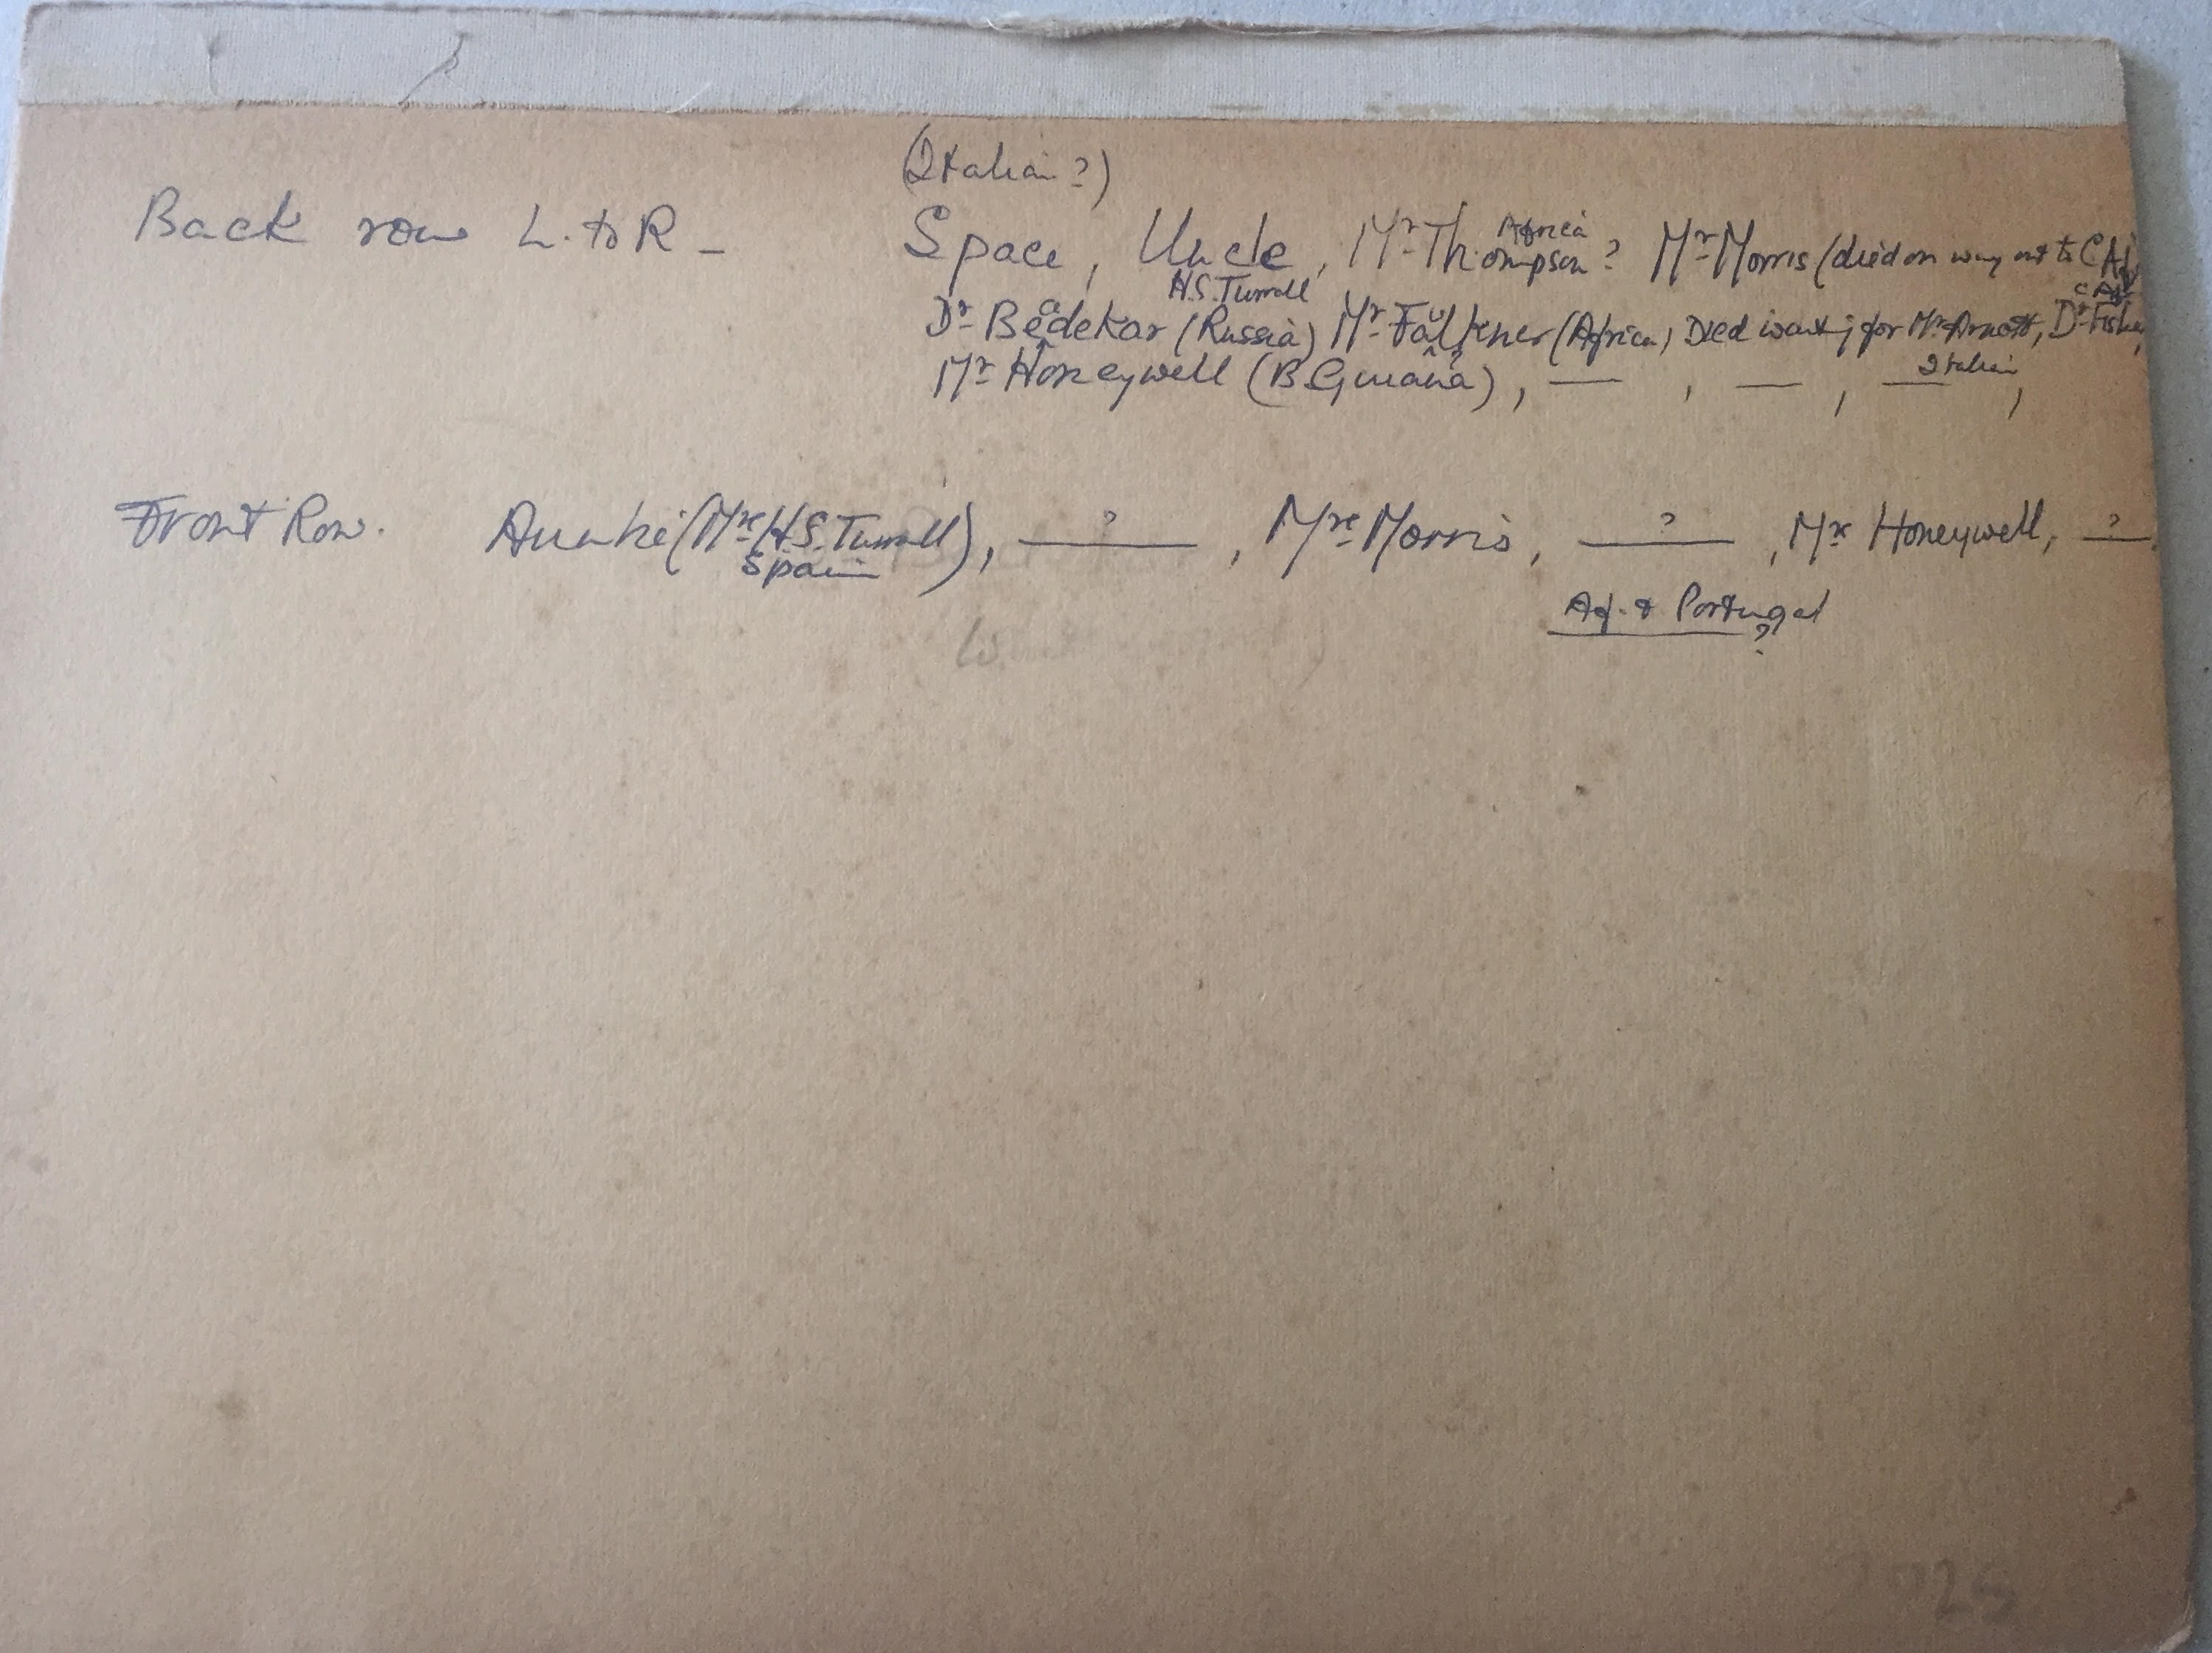 (Italian?)
Back row L. to R – Space, Uncle, Mr Thompson? Mr Morris (died on way out to C Af
Africa
H.S. Turrall
C Af
Dr Bedekar (Russia) Mr Faulkner (Africa) Died waiting for Mr Arnott, Dr Fisher,
Mr Honeywell (B Guiana), — , — , — ,
Italian
Front Row. Auntie (Mrs H.S. Turrall), ? , Mrs Morris, ? , Mrs Honeywell, ?
Spain
Af. & Portugal
?